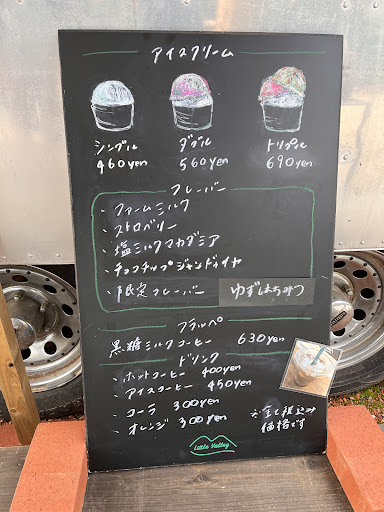 アイスクリーム
シングル ダブル トリプル
460yen 560yen 690yen
フレーバー
・ファームミルク
・ストロベリー
・塩ミルクマカダミア
・チョコチップジャンドゥイヤ
・限定フレーバー ゆずはちみつ
フラッペ
黒糖ミルクコーヒー 630yen
ドリンク
・ホットコーヒー 400yen
・アイスコーヒー 450yen
・コーラ 300yen
・オレンジ 300yen
全て税込み
価格です
Little Valley